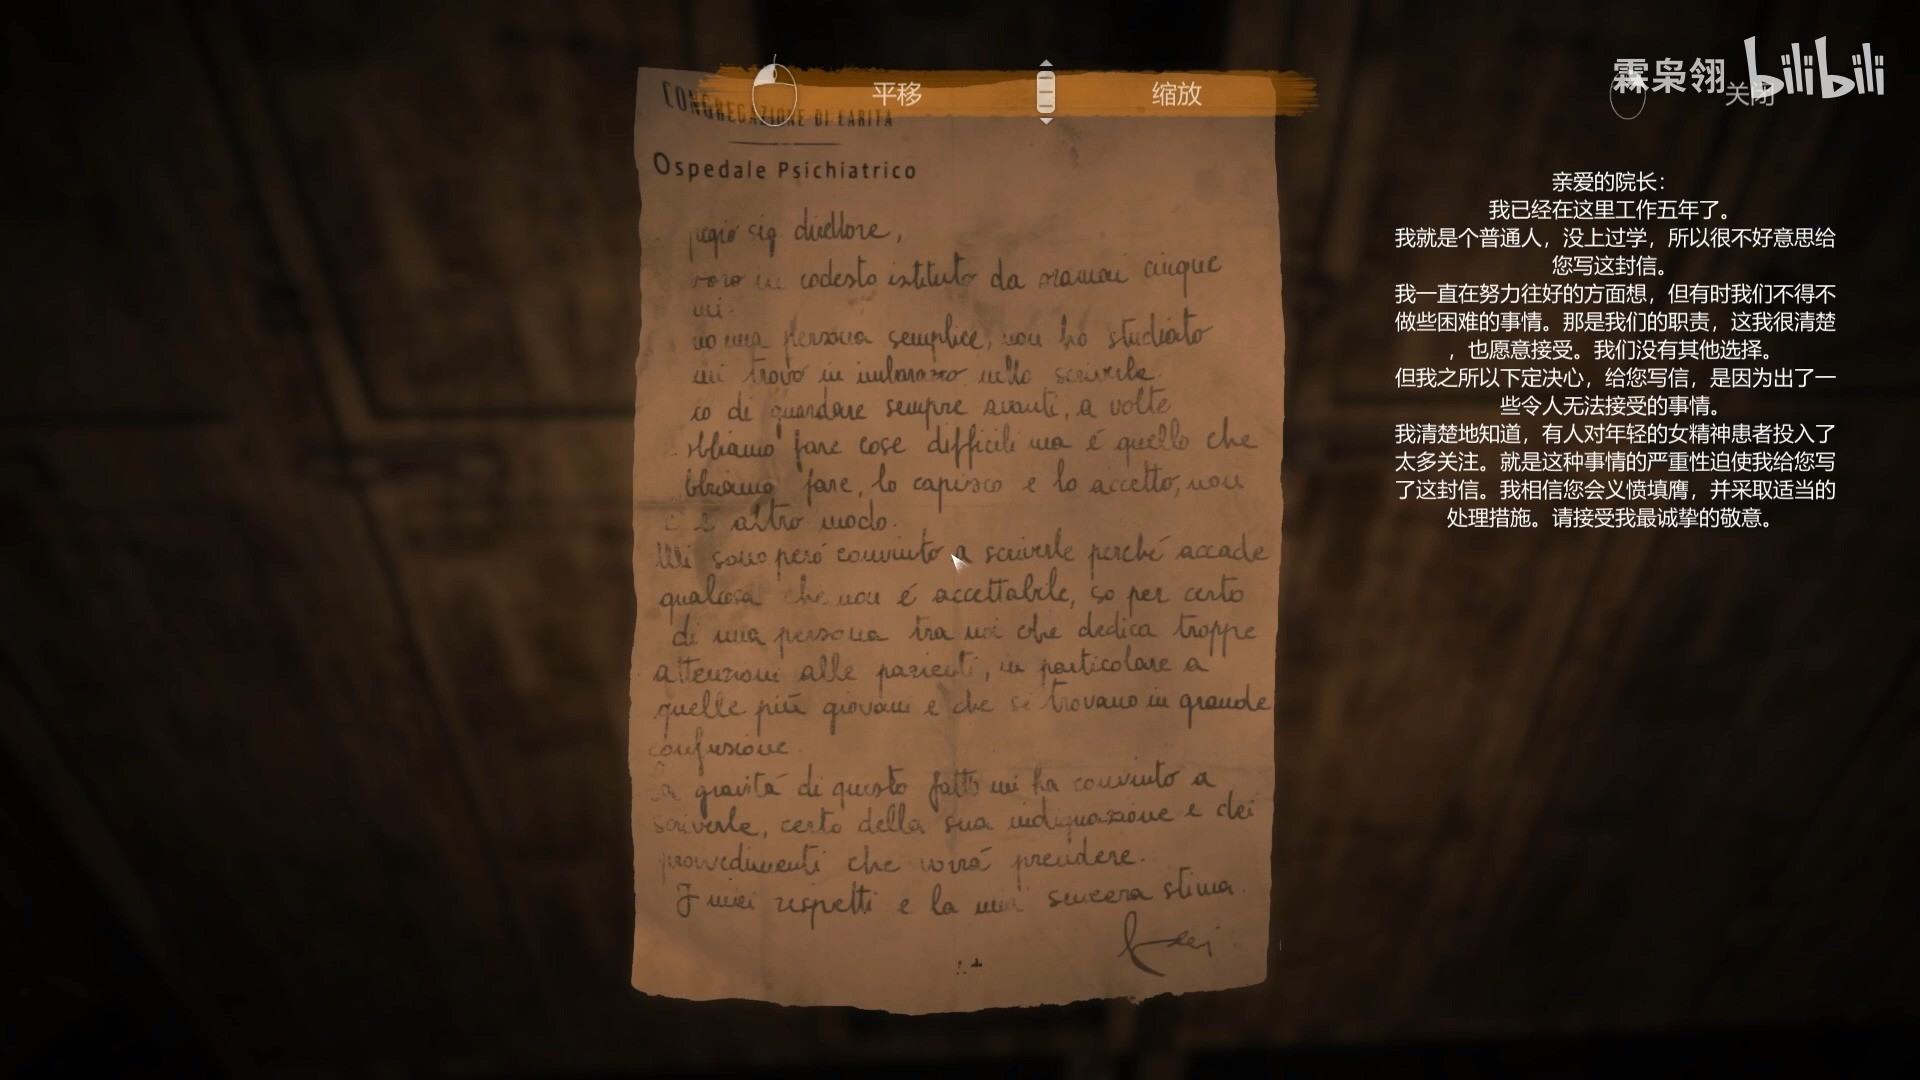 平移
缩放
关闭
霖枭翎 bilibili
CONGREGAZIONE DI CARITA
Ospedale Psichiatrico
egio sig. direttore,
voro in codesto istituto da oramai cinque
ni.
no una persona semplice, non ho studiato
mi trovo in imbarazzo nello scriverle.
co di guardare sempre avanti, a volte
bbiamo fare cose difficili ma é quello che
bbiamo fare, lo capisco e lo accetto, non
c'é altro modo.
Mi sono peró convinto a scriverle perché accade
qualcosa che non é accettabile, so per certo
di una persona tra noi che dedica troppe
attenzioni alle pazienti, in particolare a
quelle piú giovani e che si trovano in grande
confusione.
La gravitá di questo fatto mi ha convinto a
scriverle, certo della sua indignazione e dei
provvedimenti che vorrá prendere.
I miei rispetti e la mia sincera stima.
亲爱的院长：
我已经在这里工作五年了。
我就是个普通人，没上过学，所以很不好意思给
您写这封信。
我一直在努力往好的方面想，但有时我们不得不
做些困难的事情。那是我们的职责，这我很清楚
，也愿意接受。我们没有其他选择。
但我之所以下定决心，给您写信，是因为出了一
些令人无法接受的事情。
我清楚地知道，有人对年轻的女精神患者投入了
太多关注。就是这种事情的严重性迫使我给您写
了这封信。我相信您会义愤填膺，并采取适当的
处理措施。请接受我最诚挚的敬意。